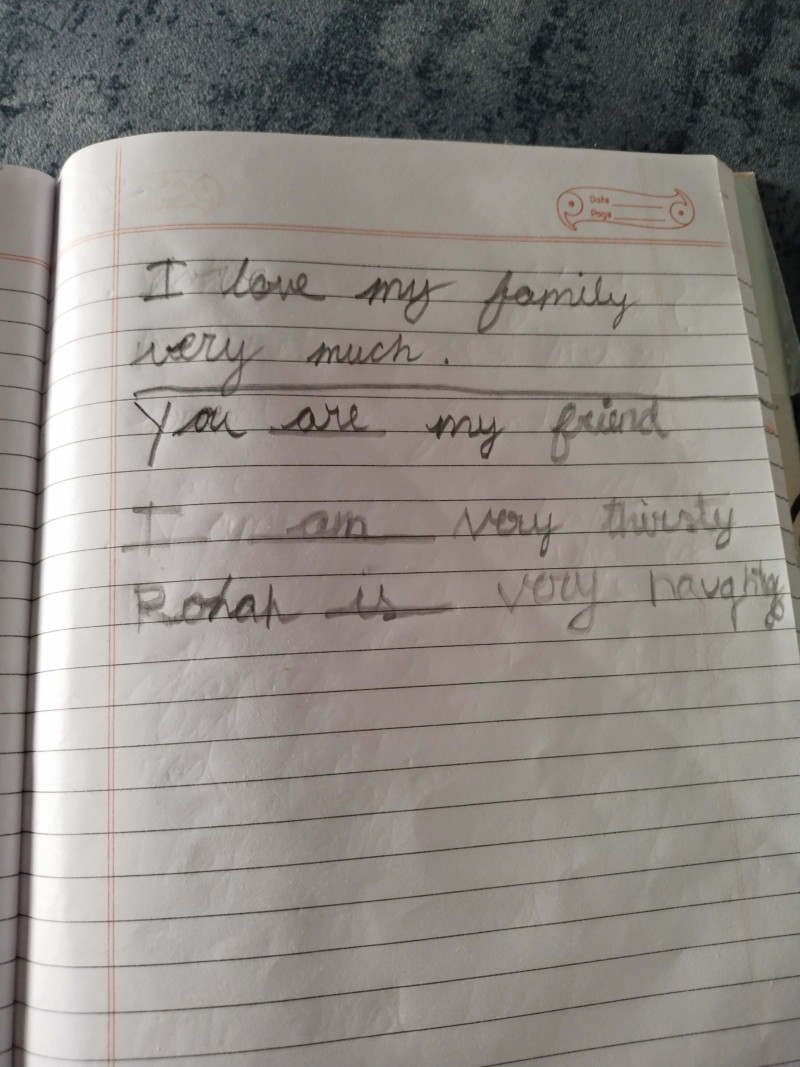 Date
Page
I love my family
very much.
You are my friend
I am very thirsty
Rohan is very naughty